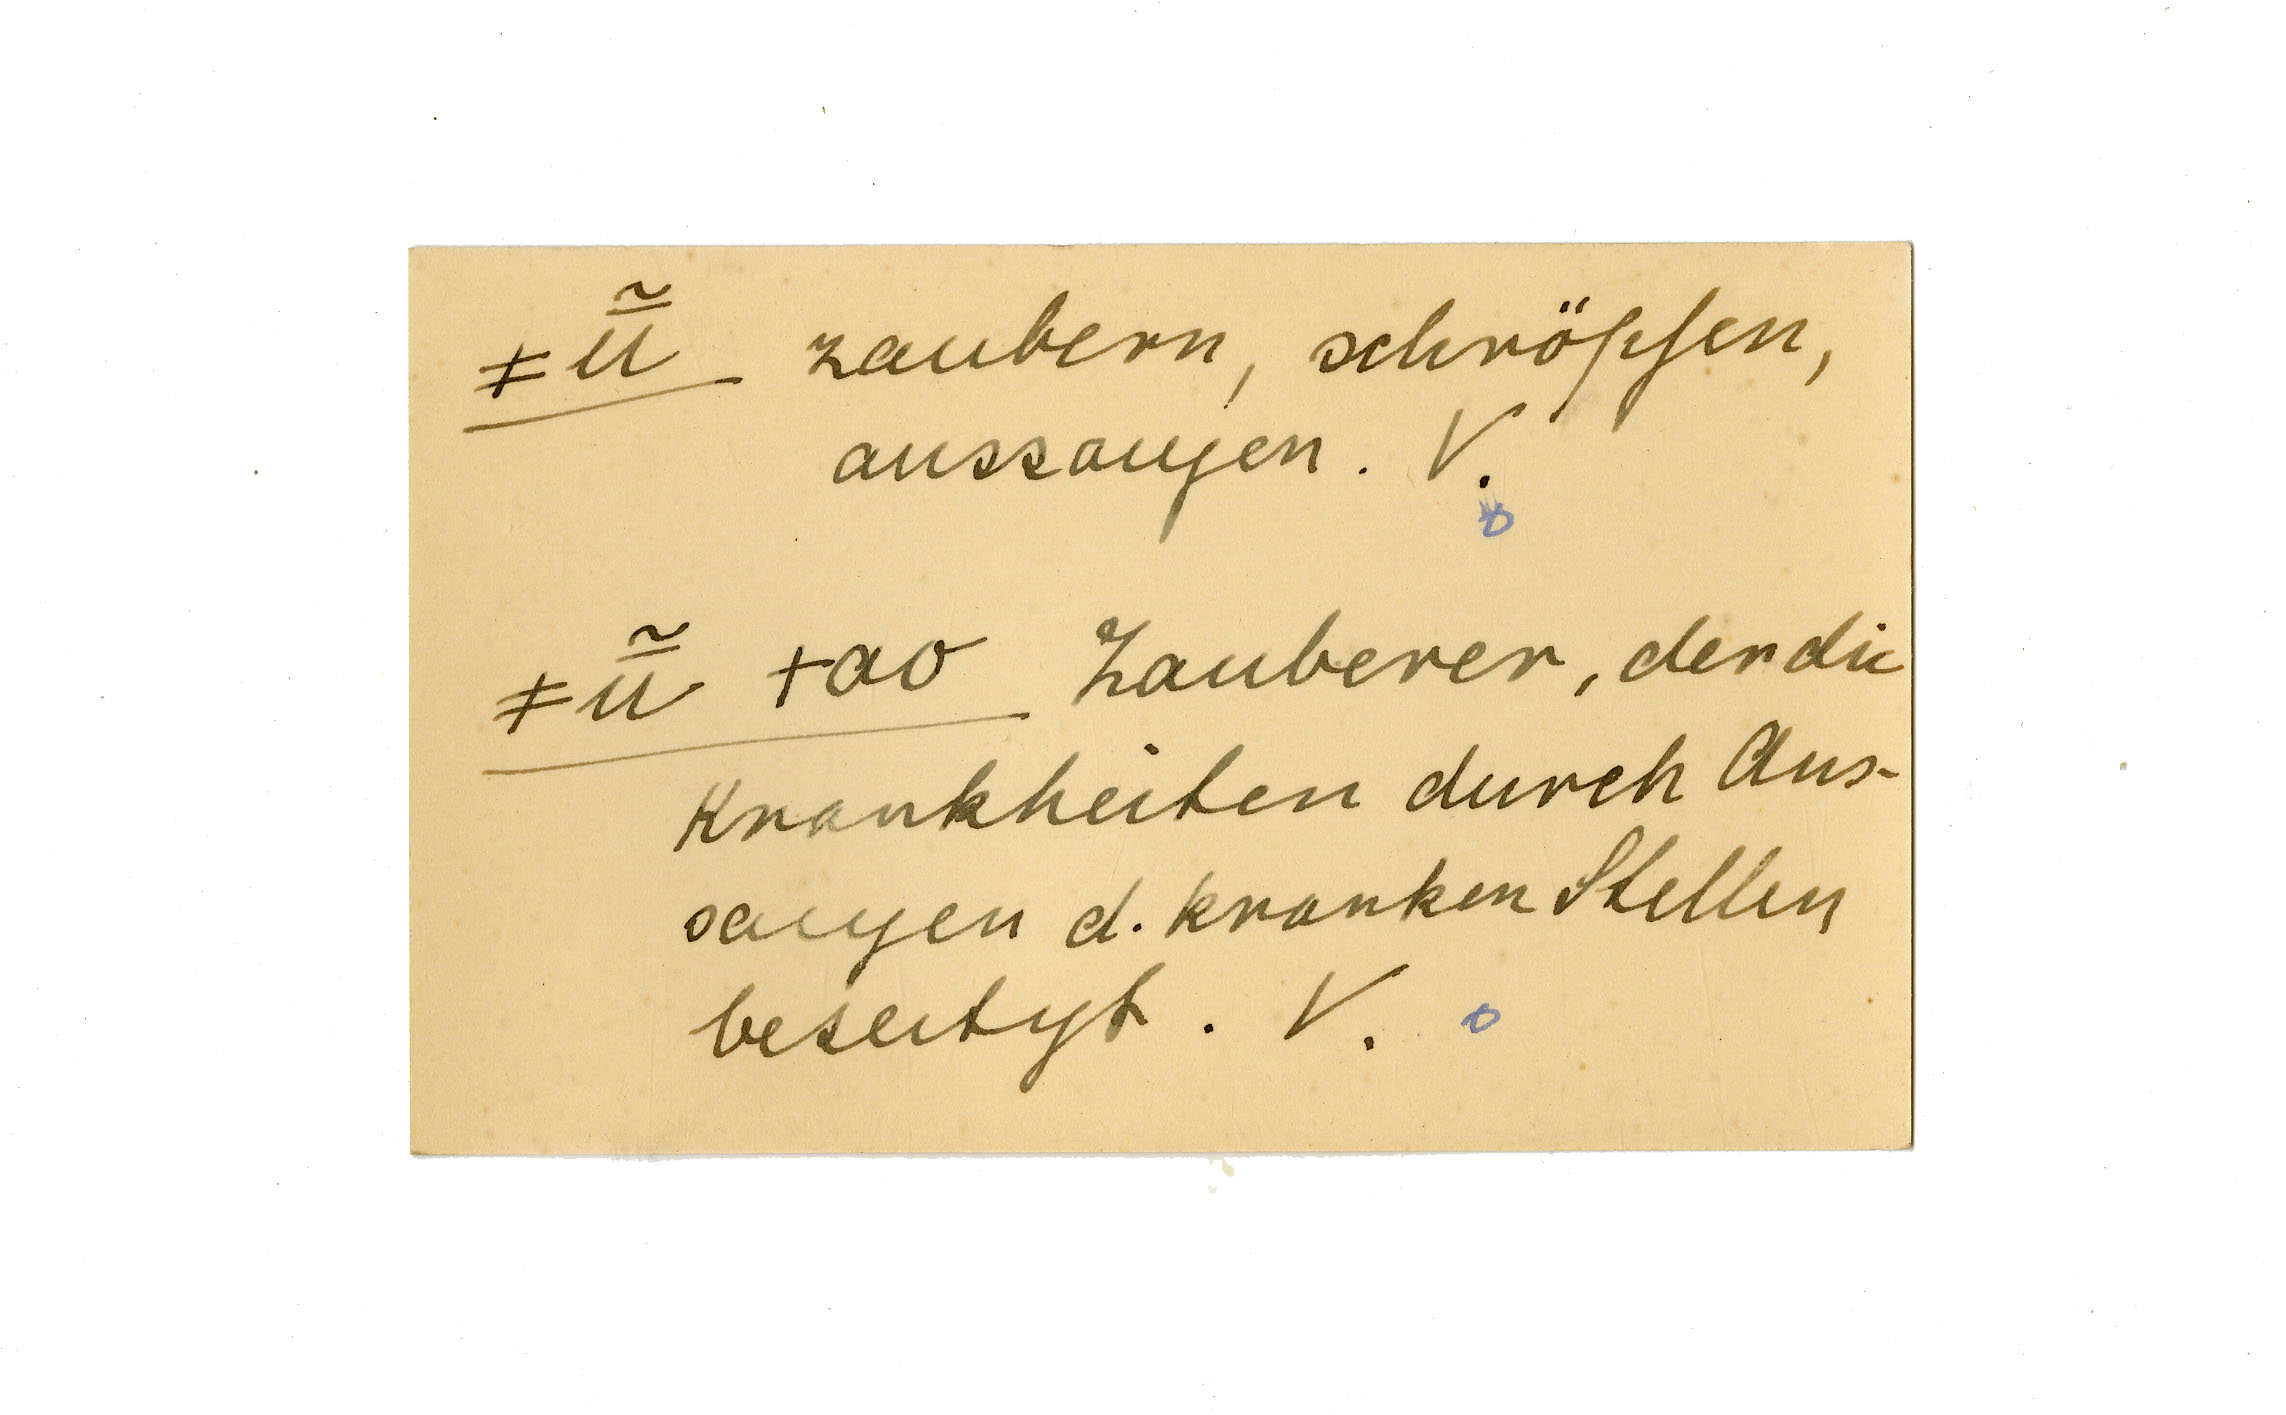 ǂũ̄ zaubern, schröpfen,
aussaugen. V.
ǂũ̄ +ao Zauberer, der die
Krankheiten durch Aus-
saugen d. kranken Stellen
beseitigt. V.